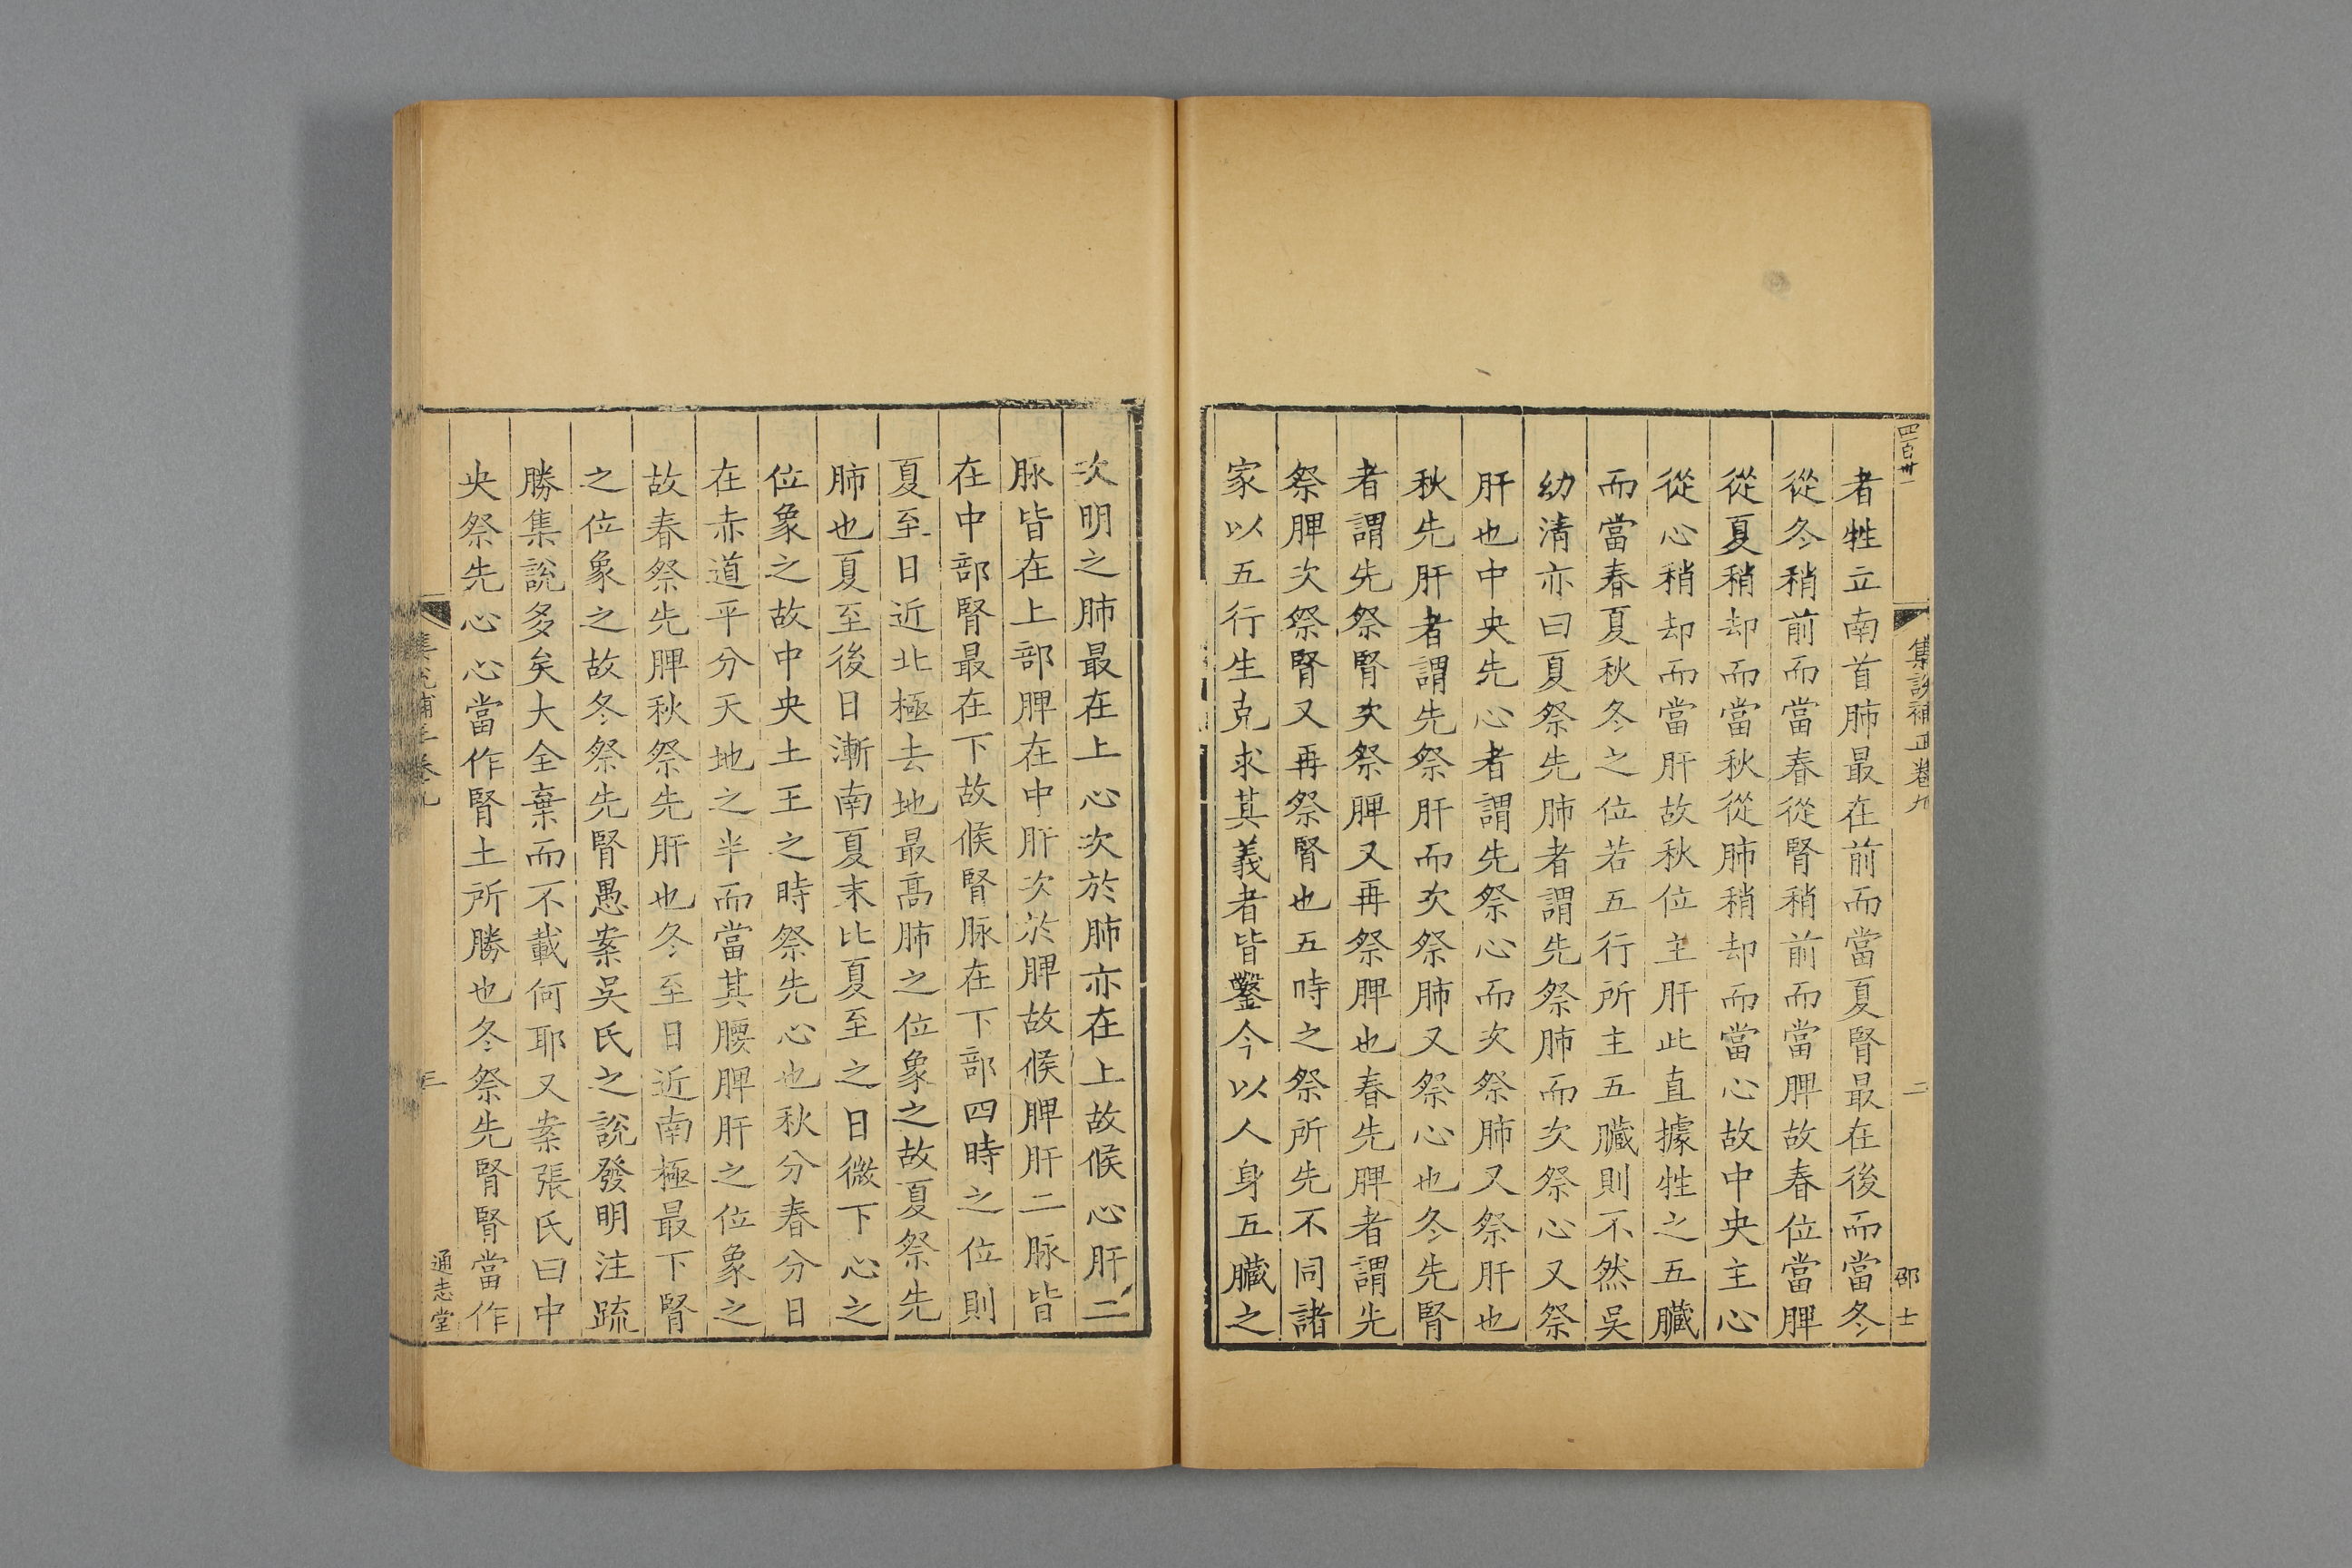 四百卅一
集說補正卷九
二
邵士
者牲立南首肺最在前而當夏腎最在後而當冬
從冬稍前而當春從腎稍前而當脾故春位當脾
從夏稍却而當秋從肺稍却而當心故中央主心
從心稍却而當肝故秋位主肝此直據牲之五臓
而當春夏秋冬之位若五行所主五臓則不然吳
幼清亦曰夏祭先肺者謂先祭肺而次祭心又祭
肝也中央先心者謂先祭心而次祭肺又祭肝也
秋先肝者謂先祭肝而次祭肺又祭心也冬先腎
者謂先祭腎次祭脾又再祭脾也春先脾者謂先
祭脾次祭腎又再祭腎也五時之祭所先不同諸
家以五行生克求其義者皆鑿今以人身五臓之
次明之肺最在上心次於肺亦在上故候心肝二
脉皆在上部脾在中肝次於脾故候脾肝二脉皆
在中部腎最在下故候腎脉在下部四時之位則
夏至日近北極去地最高肺之位象之故夏祭先
肺也夏至後日漸南夏末比夏至之日微下心之
位象之故中央土王之時祭先心也秋分春分日
在赤道平分天地之半而當其腰脾肝之位象之
故春祭先脾秋祭先肝也冬至日近南極最下腎
之位象之故冬祭先腎愚案吳氏之說發明注疏
勝集說多矣大全棄而不載何耶又案張氏曰中
央祭先心心當作腎土所勝也冬祭先腎腎當作
集說補正卷九
三
通志堂